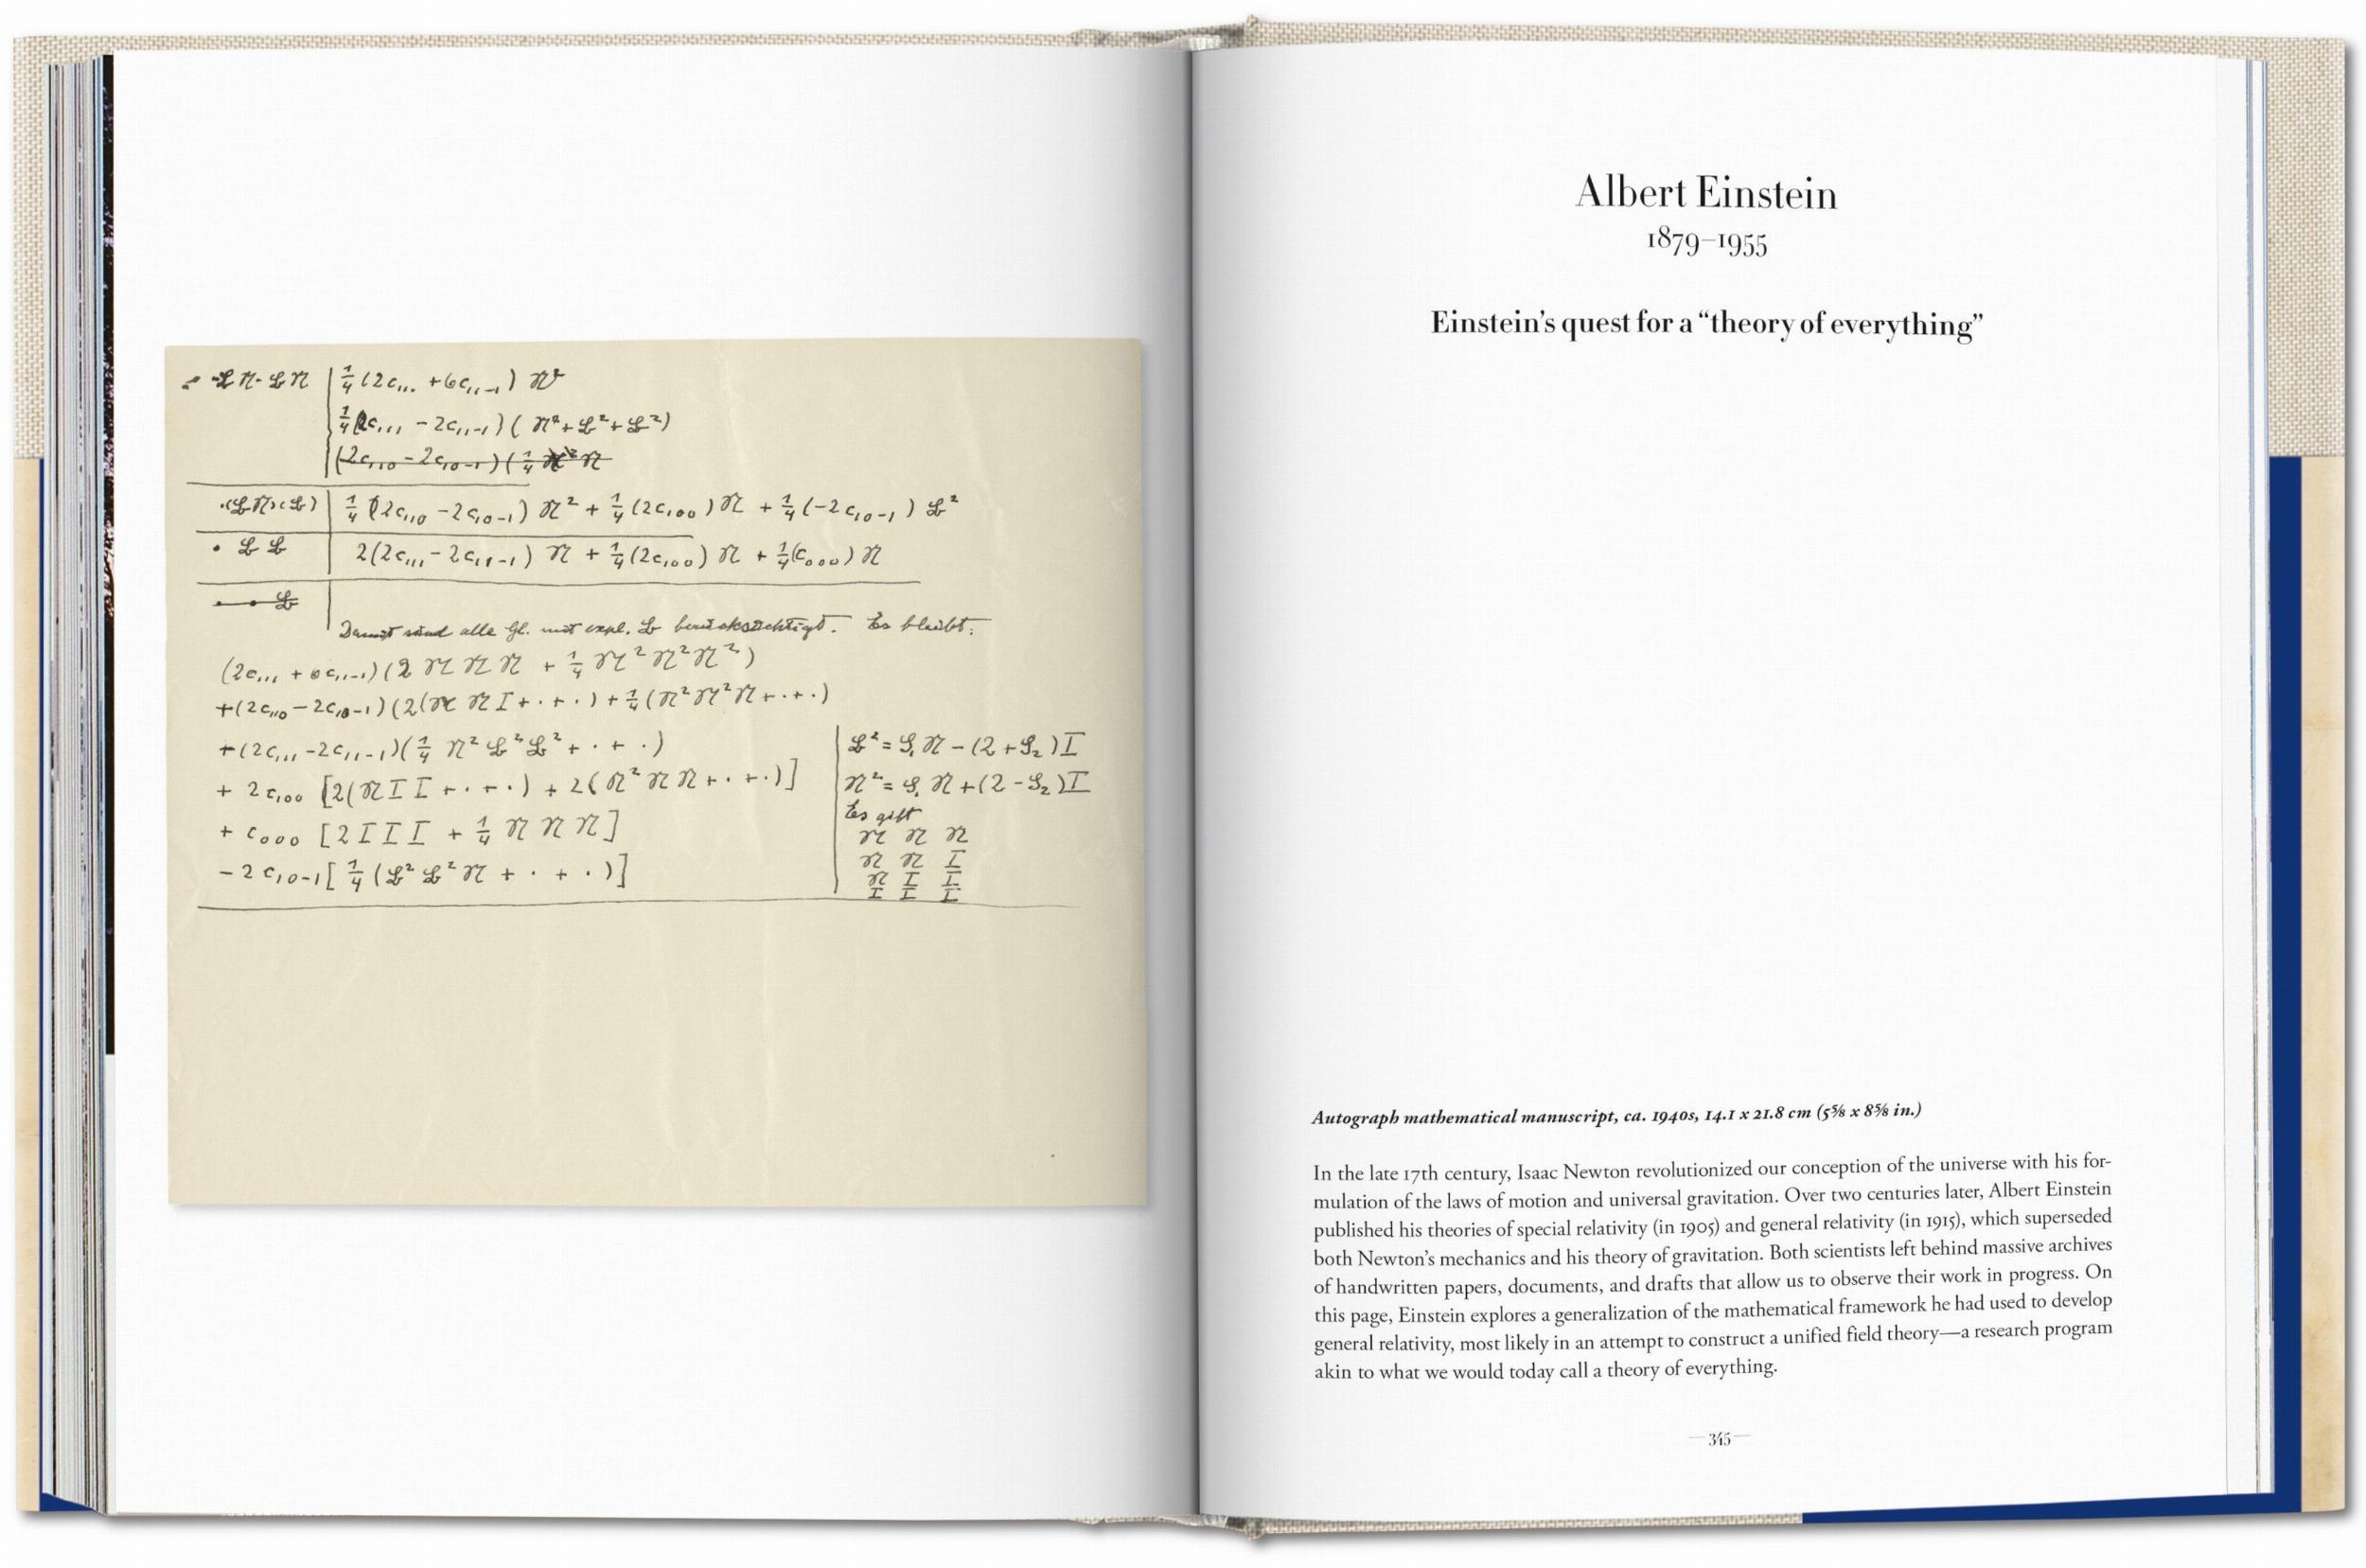 • 𝔏 𝔑 · 𝔏 𝔑 | ¼ (2c₁₁. + 6c₁₁₋₁) 𝔑²
¼(2c₁₁₁ − 2c₁₁₋₁) ( 𝔑² + 𝔏² + 𝔏²)
(2c₁₁₀ − 2c₁₀₋₁) (¼ 𝔑² 𝔑
·(𝔏𝔑)(𝔏) | ¼ (2c₁₁₀ − 2c₁₀₋₁) 𝔑² + ¼ (2c₁₀₀) 𝔑 + ¼ (−2c₁₀₋₁) 𝔏²
• 𝔏 𝔏 | 2(2c₁₁₁ − 2c₁₁₋₁) 𝔑 + ¼ (2c₁₀₀) 𝔑 + ¼(c₀₀₀) 𝔑
• • 𝔏
Damit sind alle Gl. mit expl. 𝔏 berücksichtigt. Es bleibt:
(2c₁₁₁ + 6c₁₁₋₁) (2 𝔑 𝔑 𝔑 + ¼ 𝔑² 𝔑² 𝔑²)
+(2c₁₁₀ − 2c₁₀₋₁) (2(𝔑 𝔑 I + · + ·) + ¼ (𝔑² 𝔑² 𝔑 + · + ·)
+(2c₁₁₁ − 2c₁₁₋₁)(¼ 𝔑² 𝔏² 𝔏² + · + ·)
+ 2c₁₀₀ [2(𝔑 I I + · + ·) + 2(𝔑² 𝔑 𝔑 + · + ·)]
+ c₀₀₀ [2 I I I + ¼ 𝔑 𝔑 𝔑]
− 2c₁₀₋₁[¼ (𝔏² 𝔏² 𝔑 + · + ·)]
𝔏² = S₁ 𝔑 − (2 + S₂) I
𝔑² = S₁ 𝔑 + (2 − S₂) I
Es gibt
𝔑 𝔑 𝔑
𝔑 𝔑 I
𝔑 I I
I I I
Albert Einstein
1879–1955
Einstein’s quest for a “theory of everything”
Autograph mathematical manuscript, ca. 1940s, 14.1 x 21.8 cm (5⅝ x 8⅝ in.)
In the late 17th century, Isaac Newton revolutionized our conception of the universe with his for-
mulation of the laws of motion and universal gravitation. Over two centuries later, Albert Einstein
published his theories of special relativity (in 1905) and general relativity (in 1915), which superseded
both Newton’s mechanics and his theory of gravitation. Both scientists left behind massive archives
of handwritten papers, documents, and drafts that allow us to observe their work in progress. On
this page, Einstein explores a generalization of the mathematical framework he had used to develop
general relativity, most likely in an attempt to construct a unified field theory—a research program
akin to what we would today call a theory of everything.
— 345 —